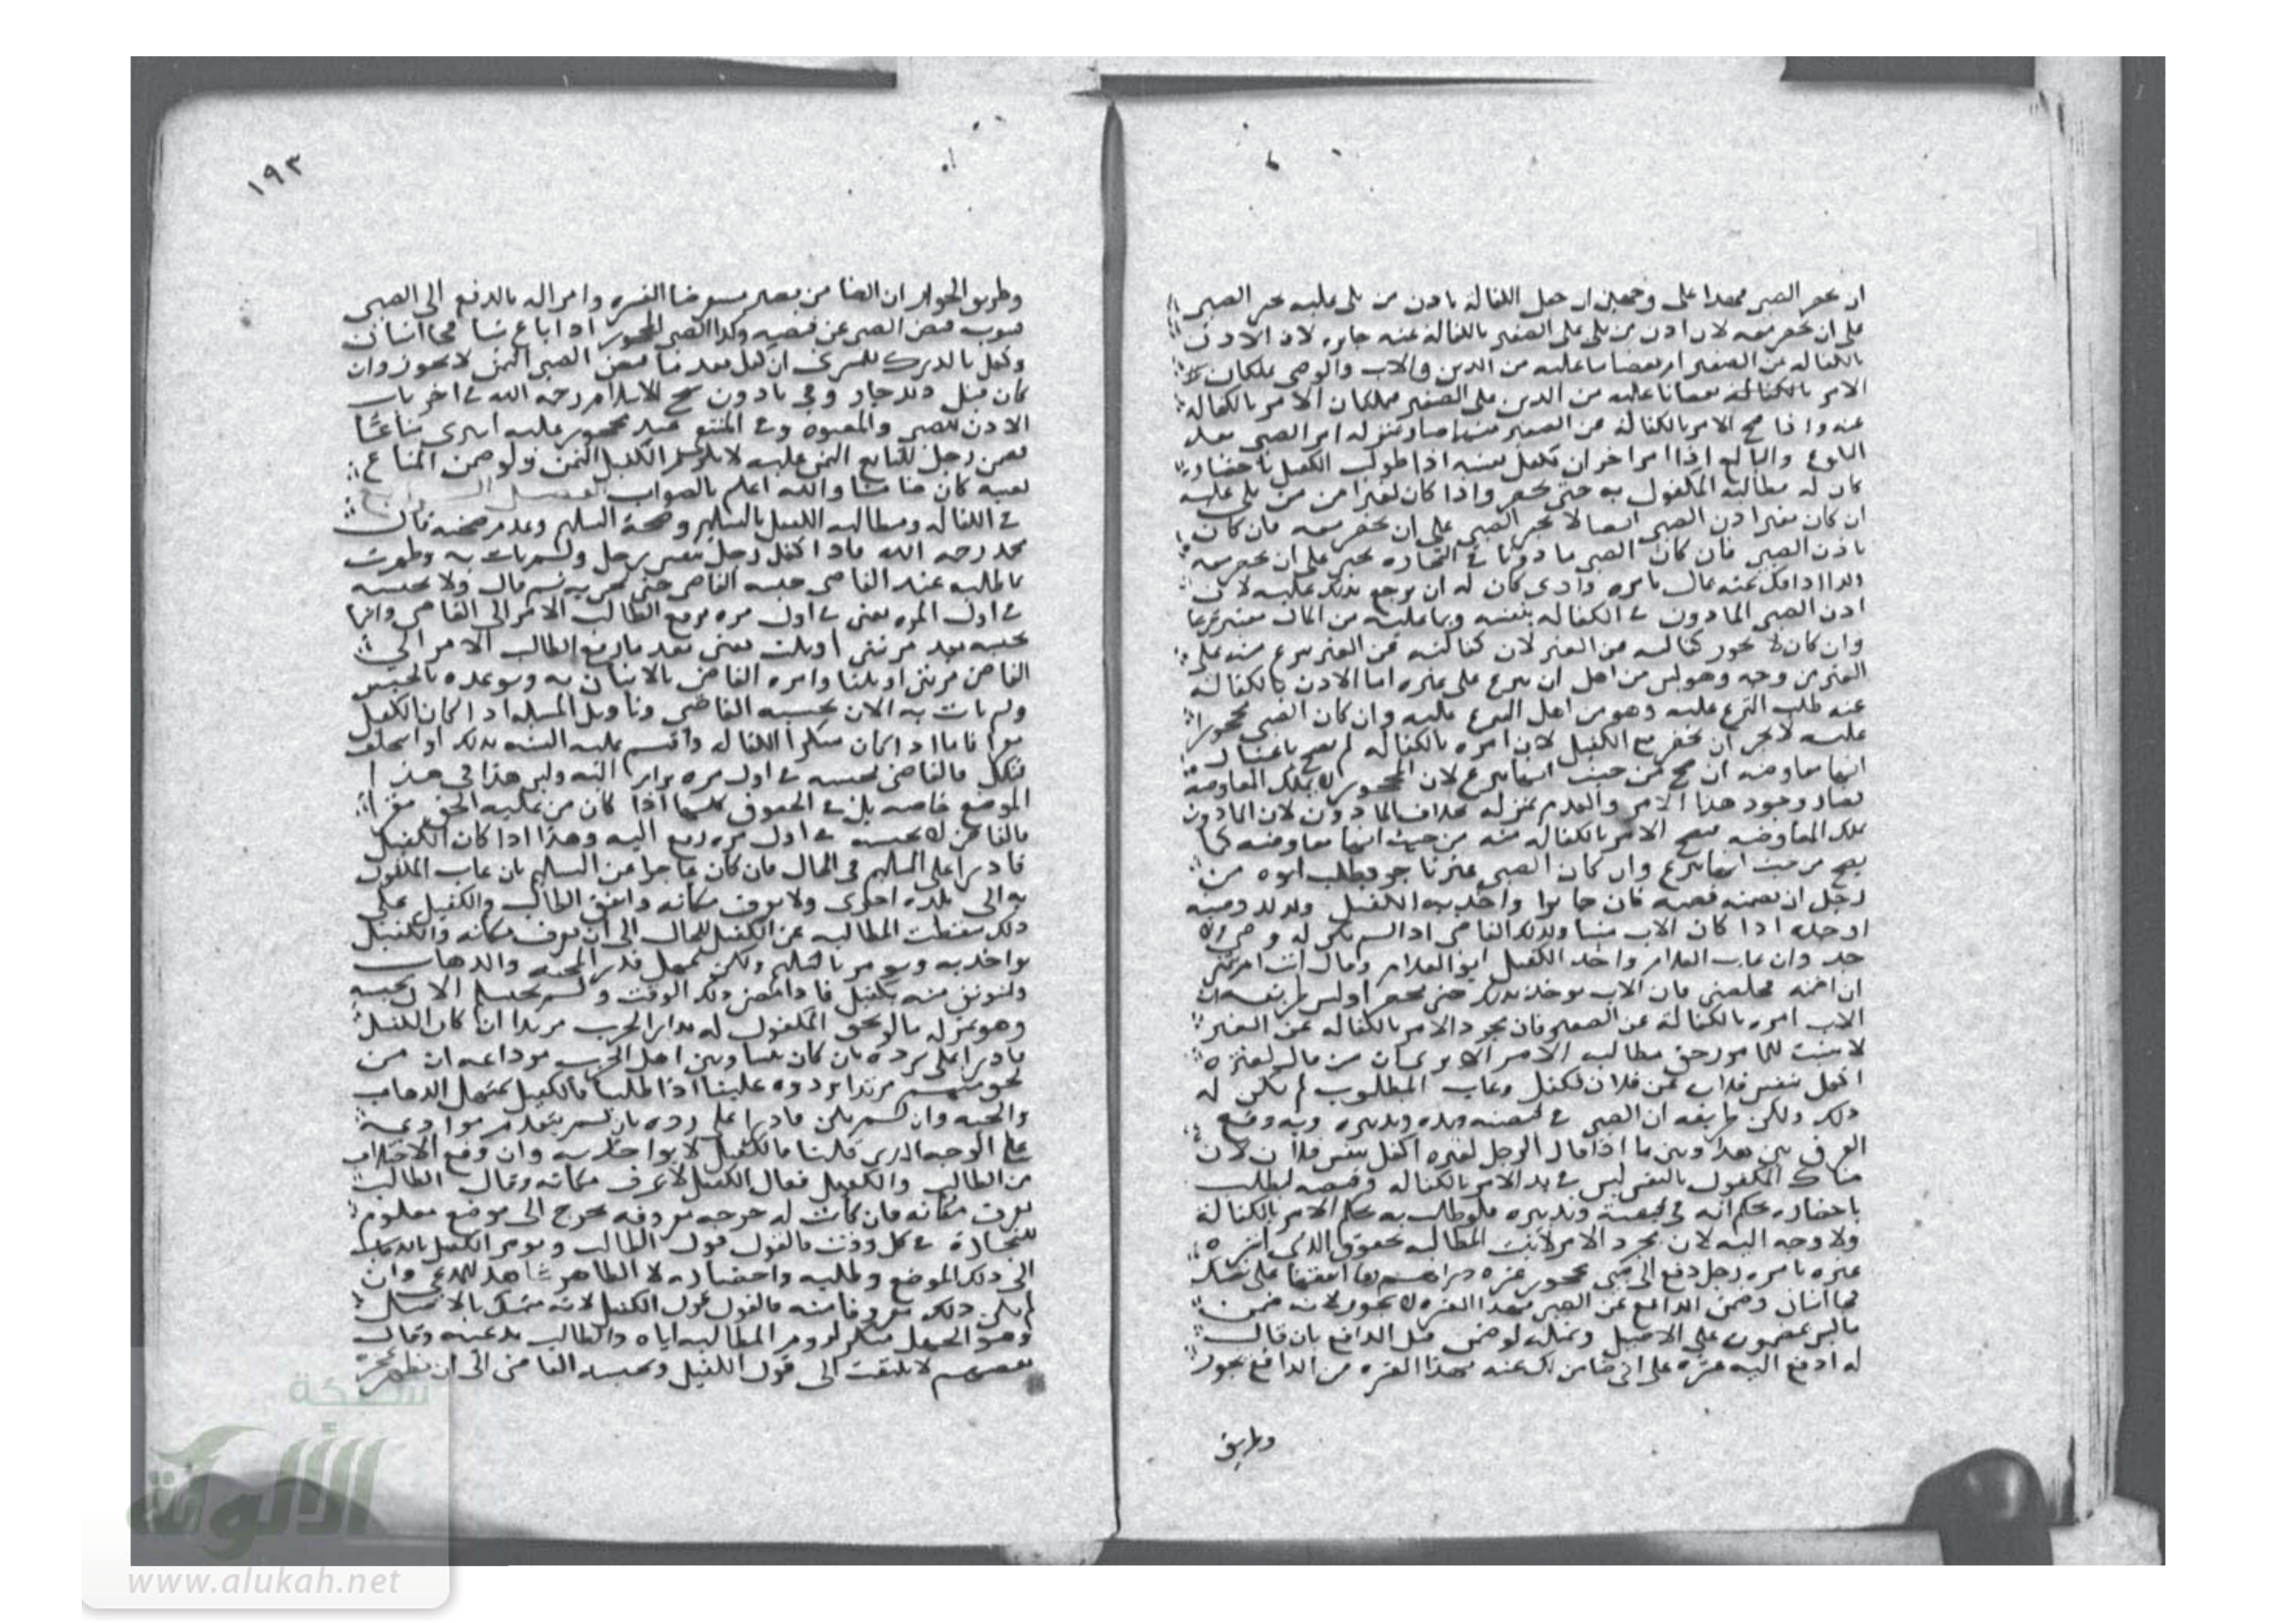 ان يحضر الصبي فهذا على وجهين ان حصل الكفالة باذن من يلي عليه يجبر الصبي
على ان يحضر معه لان اذن من يلي على الصغير بالكفالة عنه جايزه لان الاذن
بالكفالة عن الصغير امر بقضا ما عليه من الدين والاب والوصي يملكان
الامر بالكفالة بقضا ما عليه من الدين على الصغير فيملكان الامر بالكفالة
عنه واذا صح الامر بالكفالة من الصغير صار بمنزله امر الصبي بعد
البلوغ والبالغ اذا امر اخر ان تكفل بنفسه اذا طولب الكفيل باحضاره
كان له مطالبة المكفول به حتى يحضر واذا كان بغير امر من يلي عليه
ان كان بغير اذن الصبي ايضا لا يجبر الصبي على ان يحضر معه فان كان
باذن الصبي فان كان الصبي ماذونا في التجاره يجبر على ان يحضر معه
وكذا اذا كفل عنه بمال بامره وادى كان له ان يرجع بذلك عليه لان
اذن الصبي الماذون في الكفاله بنفسه وبما عليه من المال معتبر شرعا
وان كان لا يجوز كفالته عن الغير لان كفالته عن الغير تبرع منه على
الغير من وجه وهو ليس من اهل ان يتبرع على غيره اما الاذن بالكفالة
عنه طلب التبرع عليه وهو من اهل التبرع عليه وان كان الصبي محجورا
عليه لا يجبر ان يحضر مع الكفيل لان امره بالكفاله لم يصح باعتبار
انها معاوضه ان صح من حيث انها تبرع لان المحجور لا يملك المعاوضة
فصار وجود هذا الامر والعدم بمنزله بخلاف الماذون لان الماذون
يملك المعاوضه فيصح الامر بالكفاله منه من حيث انها معاوضه كما
يصح من حيث انها تبرع وان كان الصبي غير تاجر فطلب ابوه من
رجل ان يضمنه فضمنه كان جايزا واخذ به الكفيل وكذلك وصيه
او جده اذا كان الاب ميتا وكذلك القاضي اذا لم يكن له وصي ولا
جد وان غاب الغلام واخذ الكفيل ابو الغلام وقال انت امرتني
ان اضمنه فخلصني فان الاب يوخذ بذلك حتى يحضر
الاب امره بالكفالة عن الصغير فان مجرد الامر بالكفاله عن الغير
لا يثبت للمامور حق مطالبة الامر الا يرى ان من قال لغيره
اكفل بنفس فلان عن فلان فكفل وغاب المطلوب لم يكن له
ذلك ولكن طريقه ان الصبي في قبضته ويده وتدبيره وبه وقع
الفرق بين هذا وبين ما اذا قال الرجل لغيره اكفل بنفس فلان لان
هناك المكفول بالنفس ليس في يد الامر بالكفاله وقبضه ليطلب
باحضاره بحكم انه في قبضته وتدبيره فلو طالب به بحكم الامر بالكفالة
ولا وجه اليه لان مجرد الامر لا يثبت المطالبه بحقوق الذي
غيره بامره رجل دفع الى صبي محجور عشره دراهم وقال انفقها على نفسك
فجا انسان وضمن الدافع عن الصبي بهذه العشره لا يجوز لانه ضمن
ما ليس بمضمون على الاصيل وبمثله لو ضمن قبل الدافع بان قال
له ادفع اليه عشره على اني ضامن لك عنه بهذه العشره من الدافع يجوز
وطريق
١٩٣
وطريق الجواز ان الضامن يصير مستقرضا العشره وامر اله بالدفع الى الصبي
فينوب قبض الصبي عن قبضه وكذا الصبي المحجور اذا باع شيا فجا انسان
وكفل بالدرك للمشتري ان كفل بعد ما قبض الصبي الثمن لا يجوز وان
كان قبل ذلك جاز وفي ماذون شيخ الاسلام رحمه الله في اخر باب
الاذن للصبي والمعتوه وفي المنتقى عبد محجور عليه اشترى متاعا
فضمن رجل للبايع الثمن عليه لا يلزم الكفيل الثمن ولو ضمن المتاع
بعينه كان ضامنا والله اعلم بالصواب الفصل
في الكفاله ومطالبه الكفيل بالتسليم وصحة التسليم وعدم صحته قال
محمد رحمه الله واذا كفل رجل بنفس رجل ولم يات به وطولب
بالطلب عند القاضي حبسه القاضي حتى يجي به ثم قال ولا يحبسه
في اول المره يعني في اول مره يرفع الطالب الامر الى القاضي وانما
يحبسه بعد مرتين او ثلث يعني بعد ما رفع الطالب الامر الى
القاضي مرتين او ثلثا وامره القاضي بالاتيان به وتوعده بالحبس
ولم يات به الان يحبسه القاضي وتاويل المسله اذا كان الكفيل
مقرا فاما اذا كان منكرا الكفاله واقيم عليه البينه بذلك او استحلف
فنكل فالقاضي يحبسه في اول مره وليس هذا في هذا
الموضع خاصه بل في الحقوق كلها اذا كان من عليه الحق مقرا
فالقاضي لا يحبسه في اول مره رفع اليه وهذا اذا كان الكفيل
قادرا على التسليم في الحال فان كان عاجزا عن التسليم بان غاب المكفول
به الى بلده اخرى ولا يعرف مكانه واتفق الطالب والكفيل على
ذلك سقطت المطالبه عن الكفيل للحال الى ان يعرف مكانه والكفيل
يواخذ به ويومر بالتسليم ولكن يمهل قدر المجيه والذهاب
ويستوثق منه بكفيل فاذا مضى ذلك الوقت ولم يسلم الان يحبسه
وهو بمنزله ما لو لحق المكفول له بدار الحرب مرتدا ان كان الكفيل
قادرا على رده بان كان بيننا وبين اهل الحرب موادعه ان من
لحق منهم مرتدا يردوه علينا اذا طلبنا فالكفيل يمهل الذهاب
والمجيه وان لم يكن قادرا على رده بان لم يتقدم موادعة
على الوجه الذي قلنا فالكفيل لا يواخذ به وان وقع الاختلاف
بين الطالب والكفيل فقال الكفيل لا اعرف مكانه وقال الطالب
تعرف مكانه فان كانت له خرجه معروفه يخرج الى موضع معلوم
للتجارة في كل وقت فالقول قول الطالب ويومر الكفيل بالذهاب
الى ذلك الموضع وطلبه واحضاره لان الظاهر شاهد للمدعي وان
لم يكن ذلك معروفا منه فالقول قول الكفيل لانه متمسك بالاصل
وهو الجهل منكر لزوم المطالبه اياه والطالب يدعيه وقال
بعضهم لا يلتفت الى قول الكفيل ويحبسه القاضي الى ان يظهر عجزه
شبكة
الألوكة
www.alukah.net